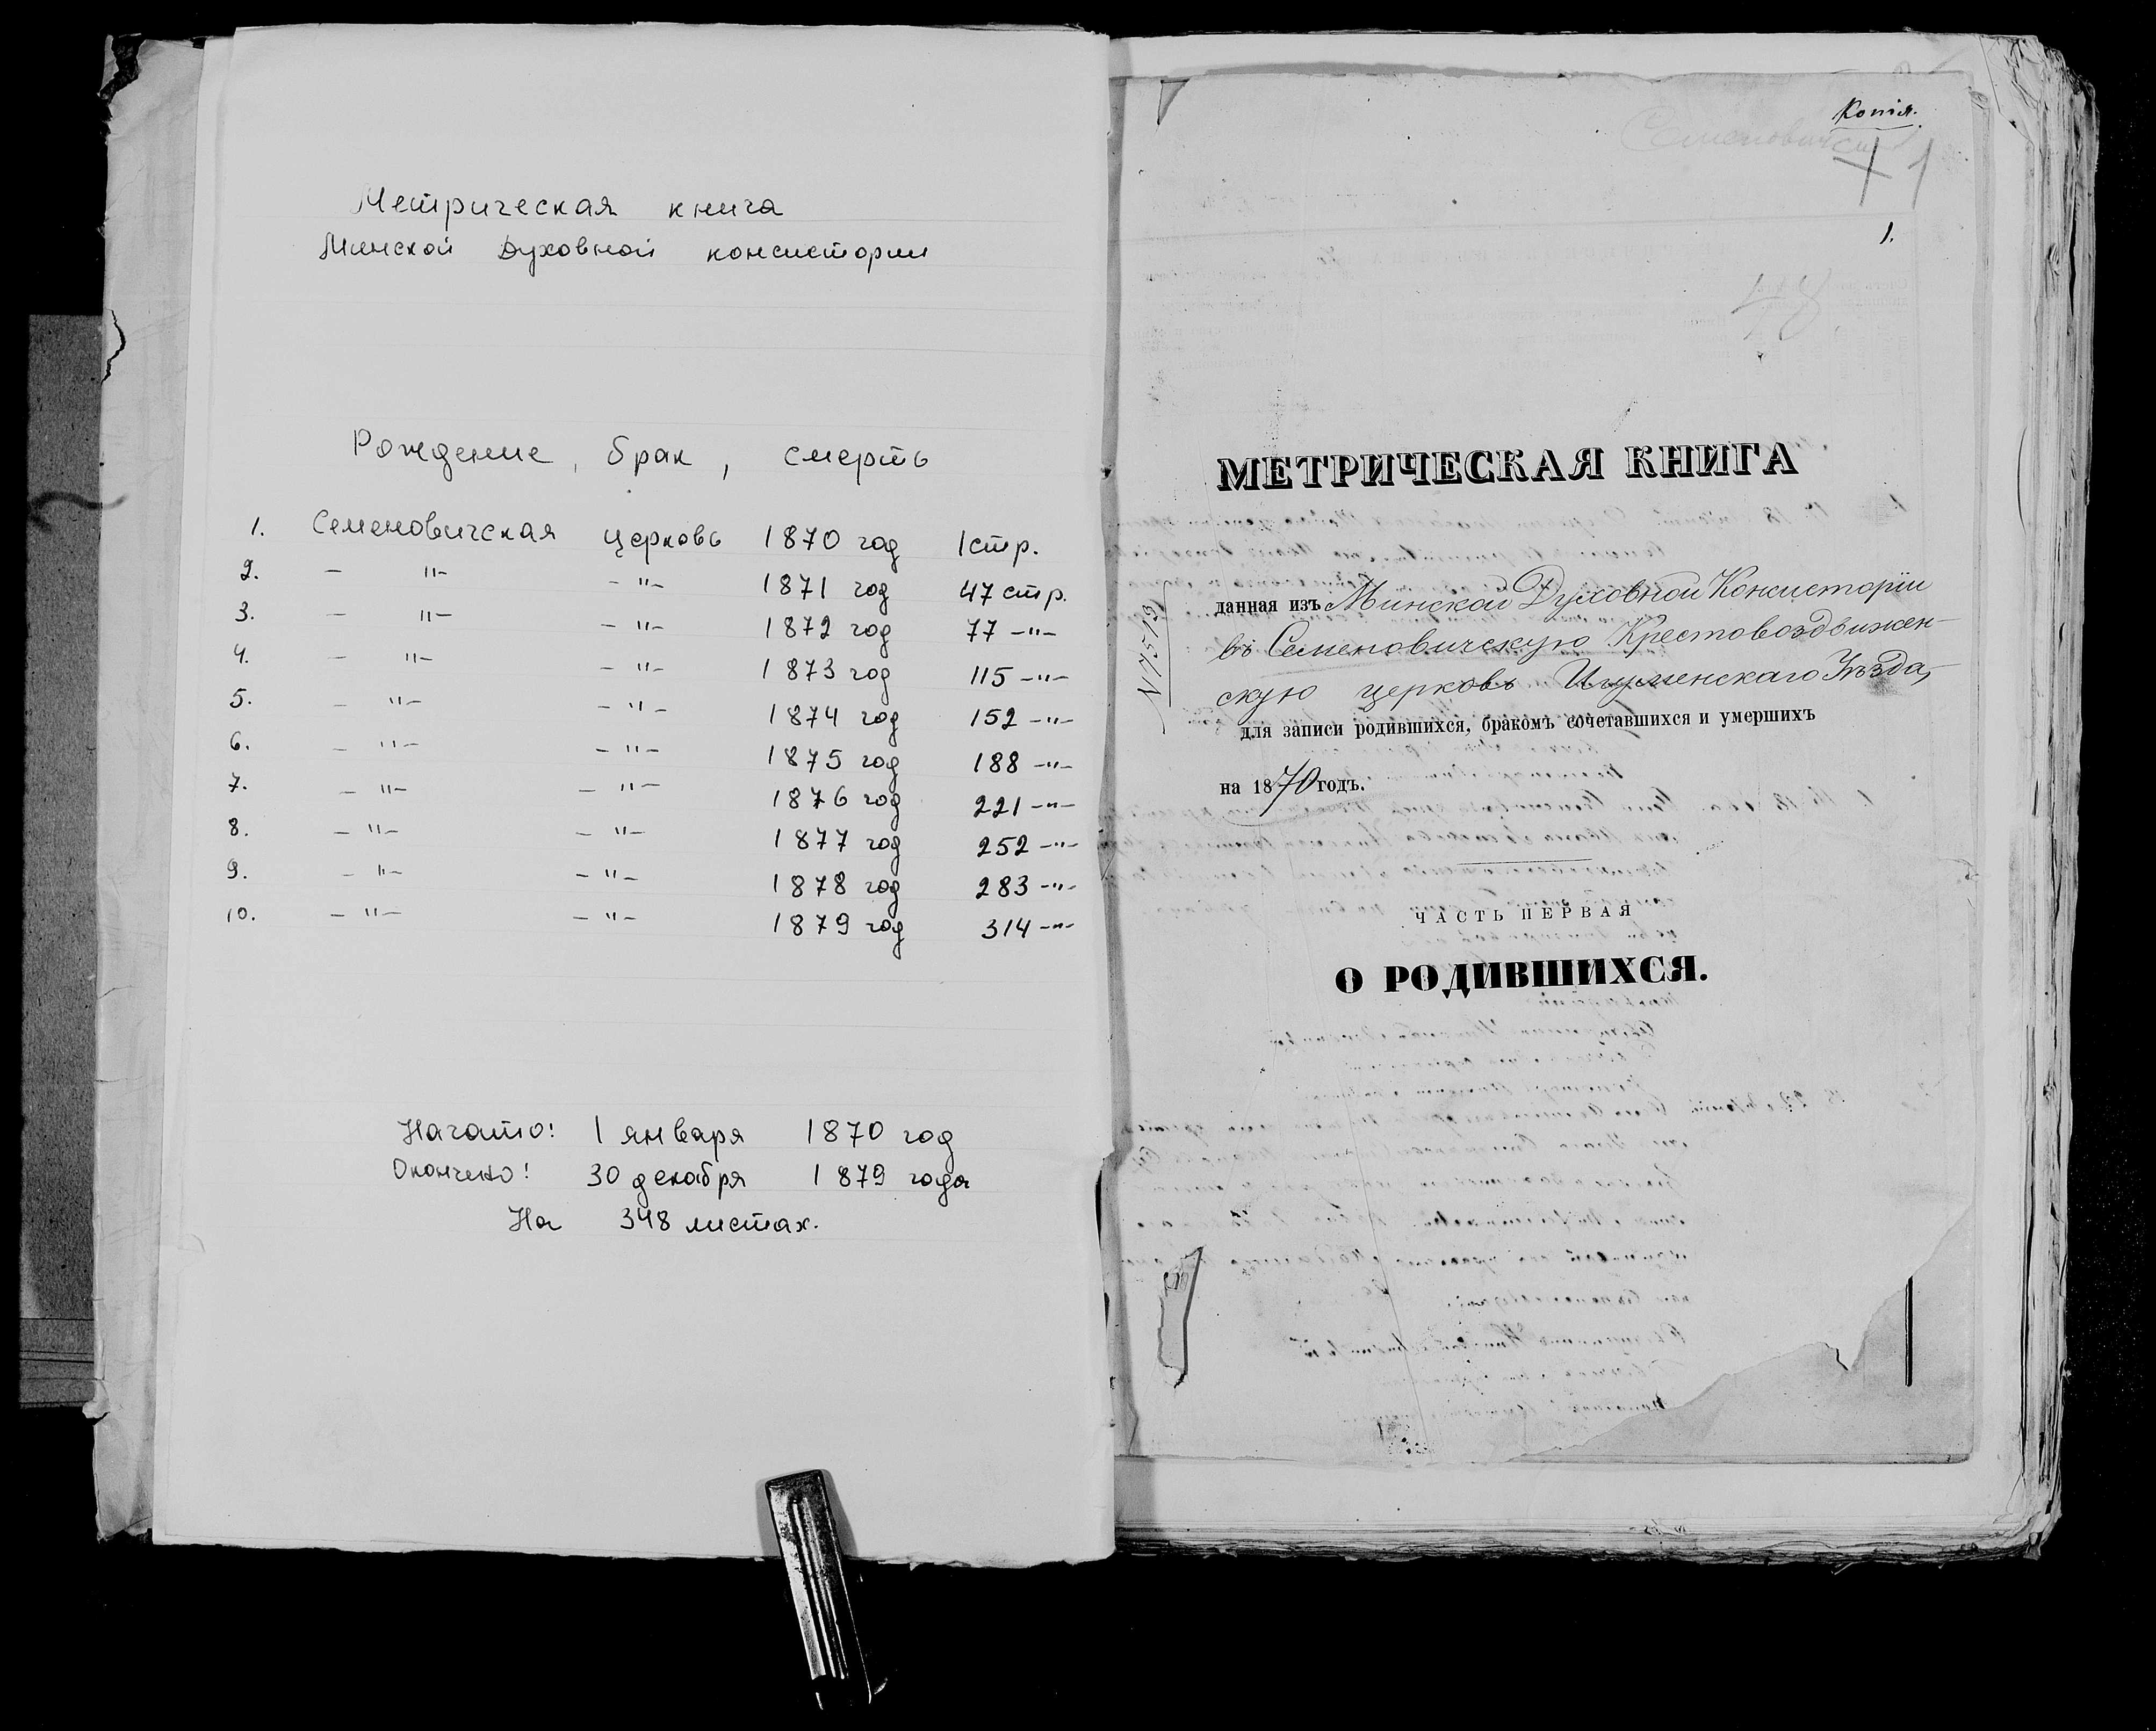 Метрическая книга
Минской Духовной консистории
Рождение, брак, смерть
1. Семеновичская церковь 1870 год 1 стр.
2. - "- - "- 1871 год 47 стр.
3. - "- - "- 1872 год 77 -"-
4. - "- - "- 1873 год 115 -"-
5. - "- - "- 1874 год 152 -"-
6. - "- - "- 1875 год 188 -"-
7. - "- - "- 1876 год 221 -"-
8. - "- - "- 1877 год 252 -"-
9. - "- - "- 1878 год 283 -"-
10. - "- - "- 1879 год 314 -"-
Начато: 1 января 1870 год
Окончено: 30 декабря 1879 года
На 348 листах.
Копія.
1
1.
48
МЕТРИЧЕСКАЯ КНИГА
N 17513
данная изъ Минской Духовной Консисторіи
въ Семеновичскую Крестовоздвижен-
скую церковь Игуменскаго Уѣзда,
для записи родившихся, бракомъ сочетавшихся и умершихъ
на 1870 годъ.
ЧАСТЬ ПЕРВАЯ
О РОДИВШИХСЯ.